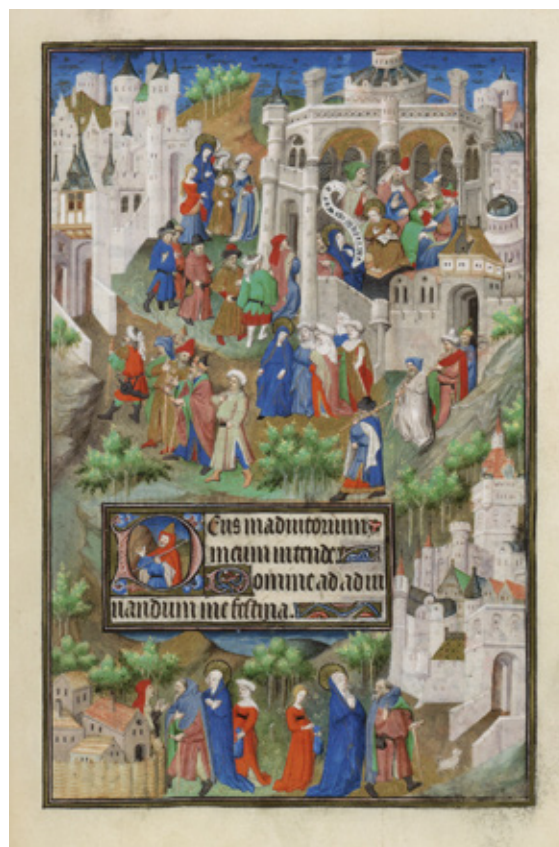 Deus in adiutorium
meum intende
Domine ad adiu
uandum me festina.